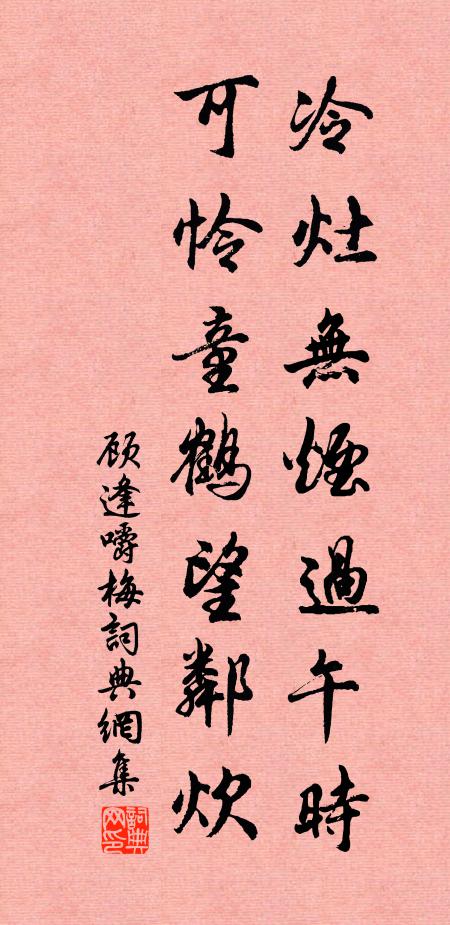 冷灶無煙過午時
可怜童鶴望鄰炊
顾逢嚼梅詞典網集
詞典网印